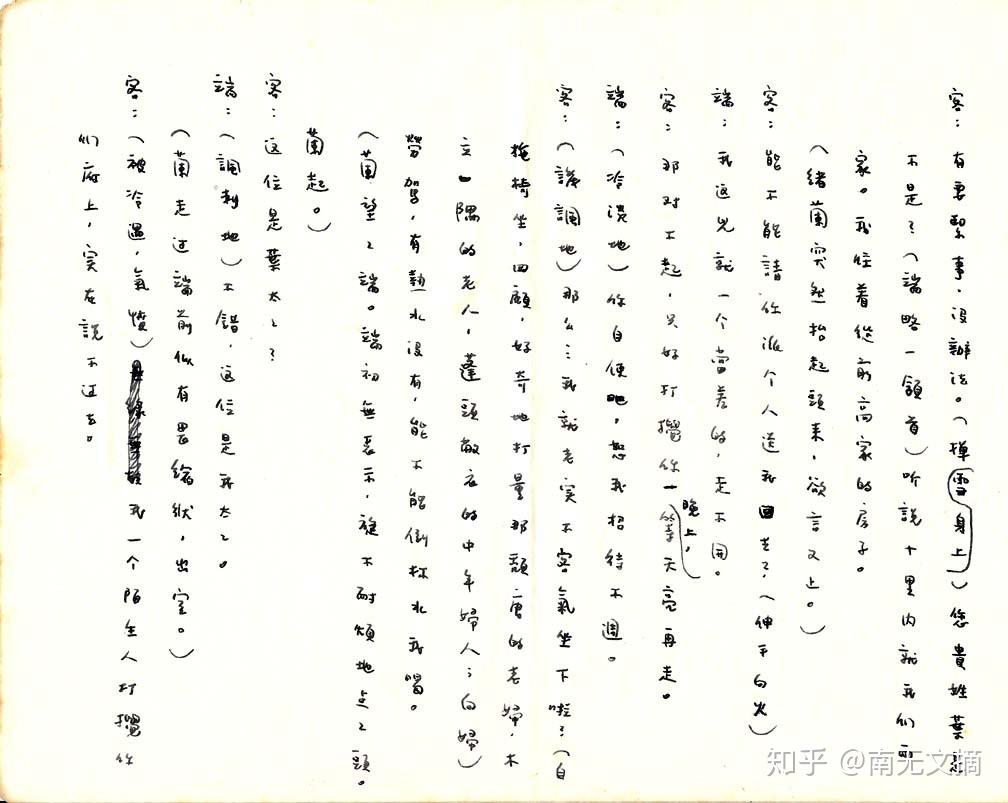 客：有要緊事，沒辦法。（撣雪身上）您貴姓葉是
不是？（端略一頷首）听説十里内就我们两
家。我住着從前高家的房子。
（緒蘭突然抬起頭来，欲言又上。）
客：能不能請你派个人送我回去？（伸手向火）
端：我这兒就一个當差的，走不開。
客：那对不起，只好打攪你一晚上，等天亮再走。
端：（冷淡地）你自便吧，恕我招待不週。
客：（譏諷地）那么：我就老实不客氣坐下啦？（自
拖椅坐，四顧，好奇地打量那頹唐的老婦，木
立一隅的老人，蓬頭敝衣的中年婦人；向婦）
勞駕，有熱水沒有，能不能倒杯水我喝。
（蘭望望端。端初無表示，旋不耐煩地点点頭。
蘭起。）
客：这位是葉太太？
端：（諷刺地）不錯，这位是我太太。
（蘭走过端前似有畏縮狀，出室。）
客：（被冷遇，氣憤）我一个陌生人打攪你
们府上，实在説不过去。
知乎 @南无文摘